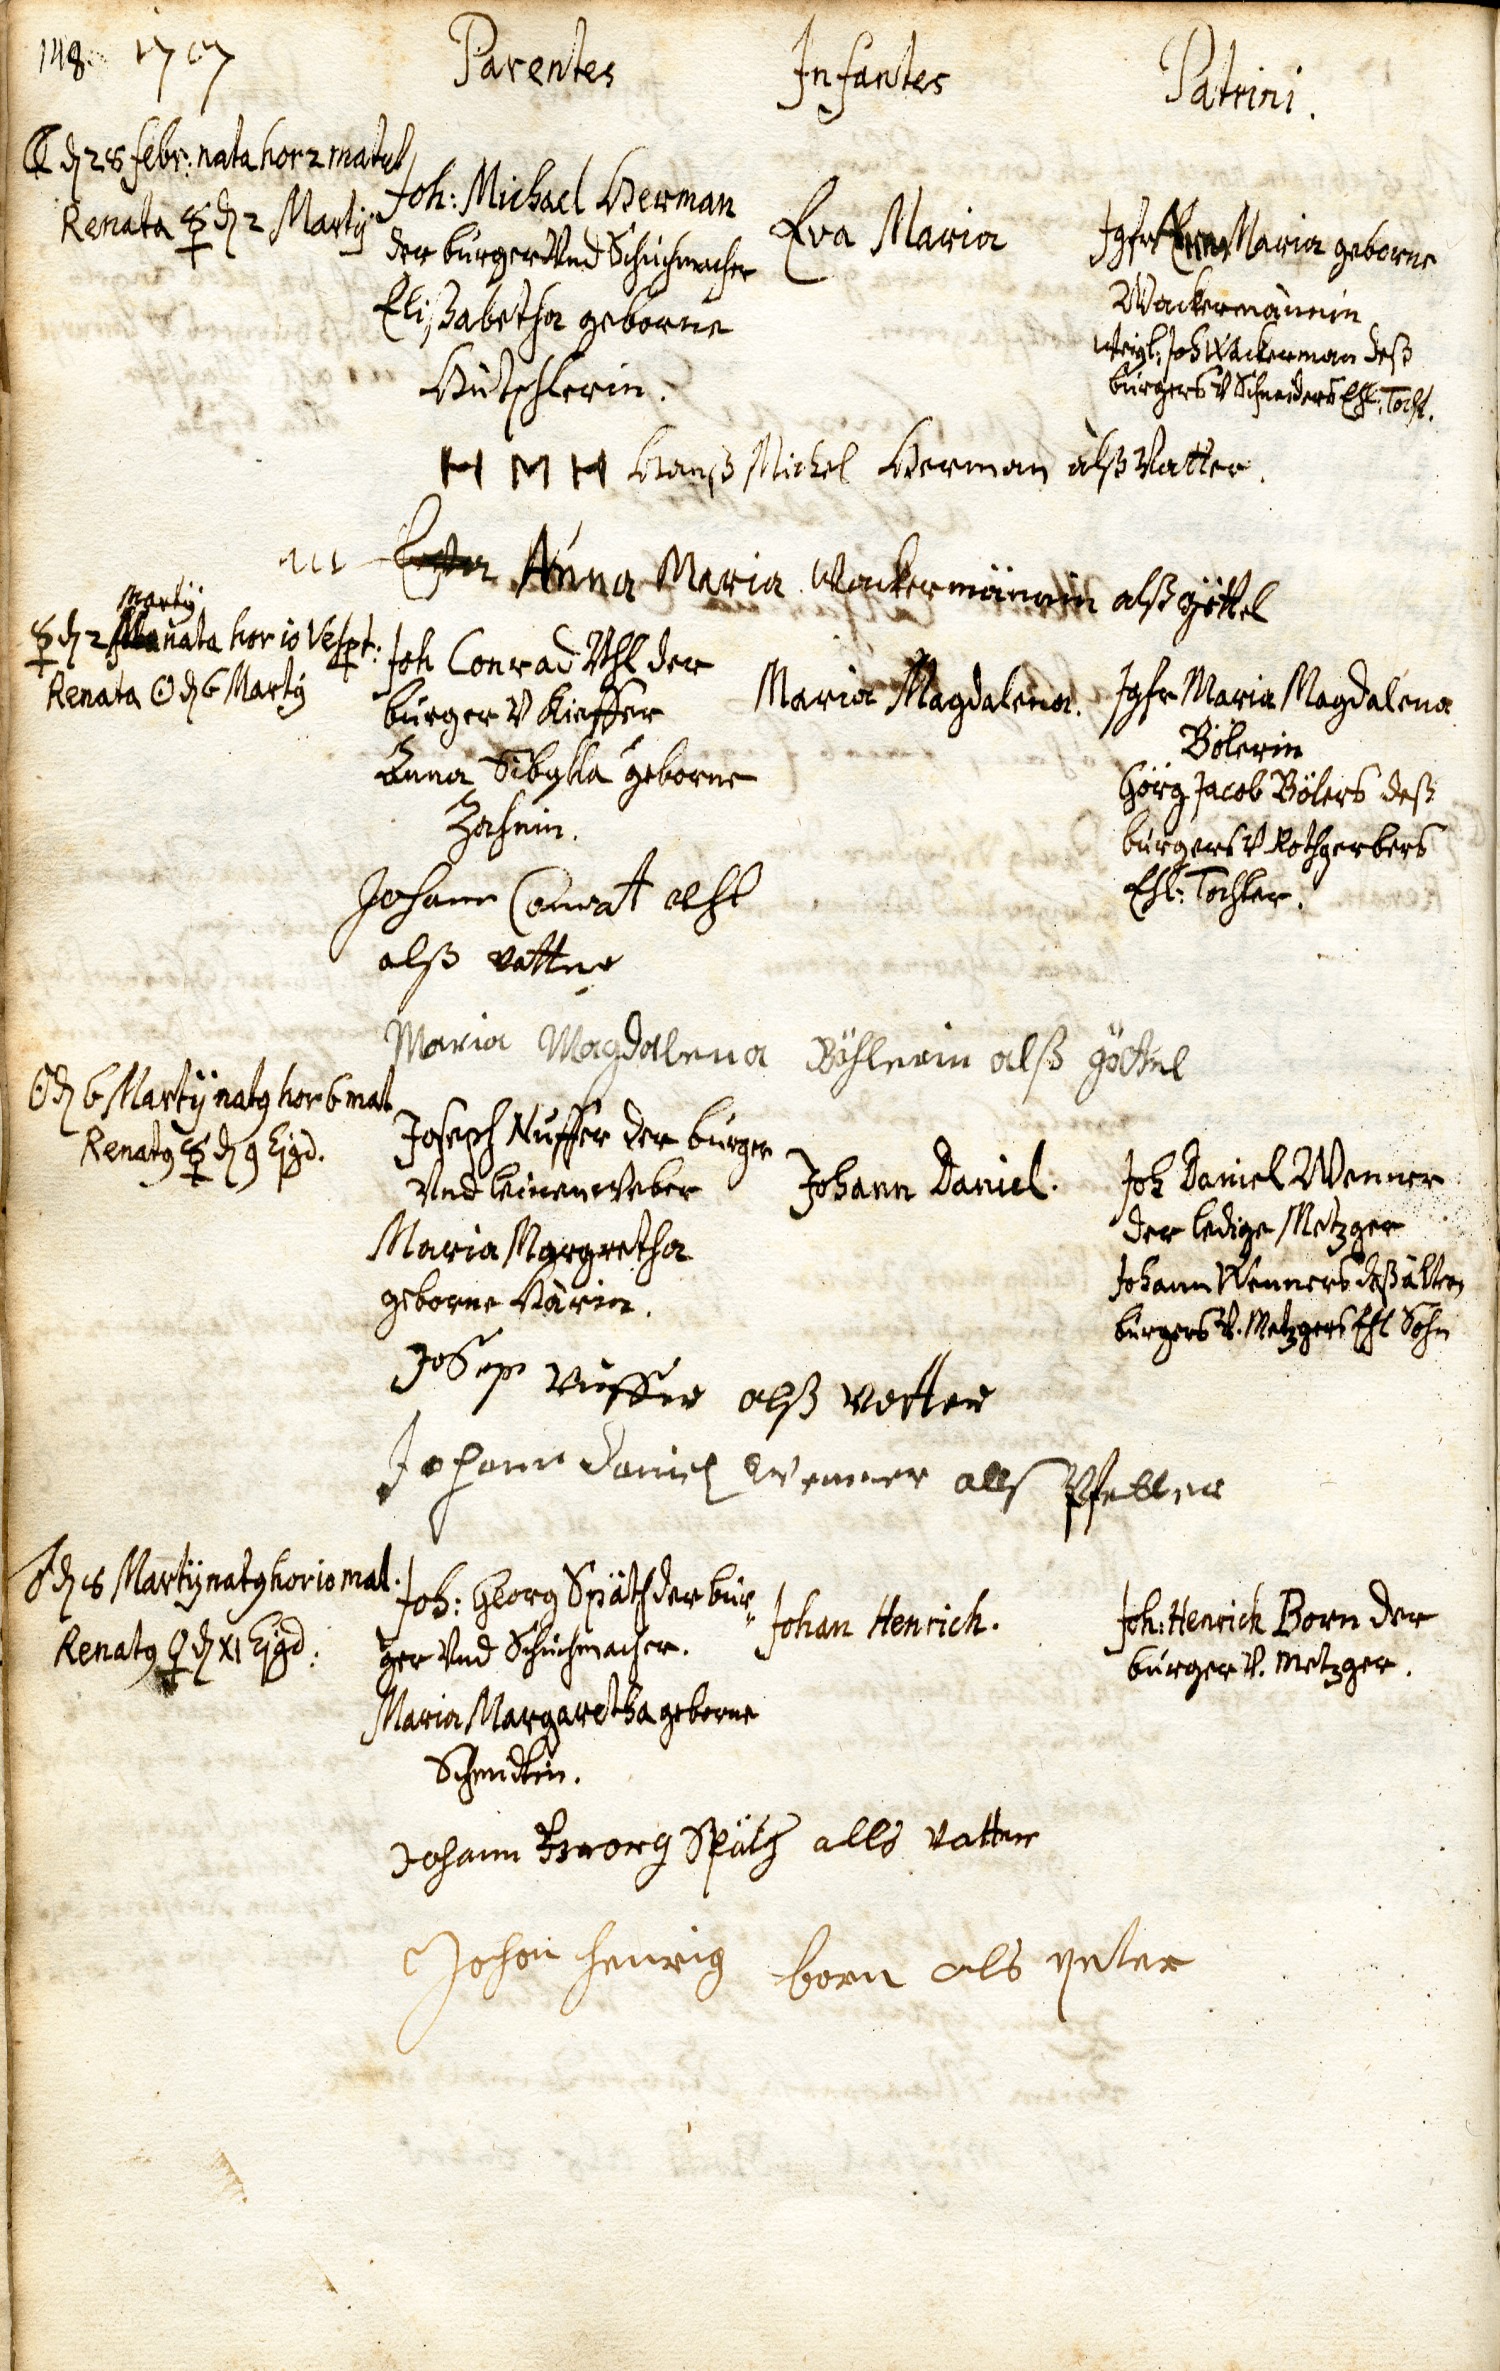 148. 1707
Parentes
Infantes
Patrini.
☾ d 28 febr: nata hor 2 matut
Renata ☿ d 2 Martij
Joh: Michael Herman
der burger Vnd Schuchmacher
Elißabetha geborne
Hutschlerin.
Eva Maria
Jgfr Maria geborne
Wackermännin
weyl: Joh Wackerman deß
burgers V Schneiders Ehl: Tocht.
H M H Hanß Michel Herman alß Vatter.
Anna Maria Wackermännin alß göttel
Martij
☿ d 2 nata hor 10 Vespt:
Renata ☉ d 6 Martij
Joh Conrad Vhl der
burger V Kieffer
Anna Sibylla geborne
Zahnin.
Maria Magdalena.
Jgfr Maria Magdalena
Bölerin
Görg Jacob Bölers deß
burgers V Rothgerbers
Ehl: Tochter.
Johann Conrat Uhl
alß vatter
Maria Magdalena Böhlerin alß göttel
☉ d 6 Martij natg hor 6 mat
Renatg ☿ d 9 Ejgd.
Joseph Nuffer der burger
Vnd leinenweber
Maria Margretha
geborne Härin.
Johann Daniel.
Joh Daniel Wenner
der ledige Metzger
Johann Wenners deß ältern
burgers V. Metzgers Ehl Sohn
Josep Nuffer alß vatter
Johann Daniel Wenner alls Pfetter
♂ d 8 Martij natg hor 10 mat.
Renatg ♀ d XI Ejgd:
Joh: Georg Späth der bur=
ger Vnd Schuchmacher.
Maria Margaretha geborne
Schmidtin.
Johan Henrich.
Joh: Henrich Born der
burger V. metzger.
Johann Georg Späth alls vatter
Johan henrig born als peter